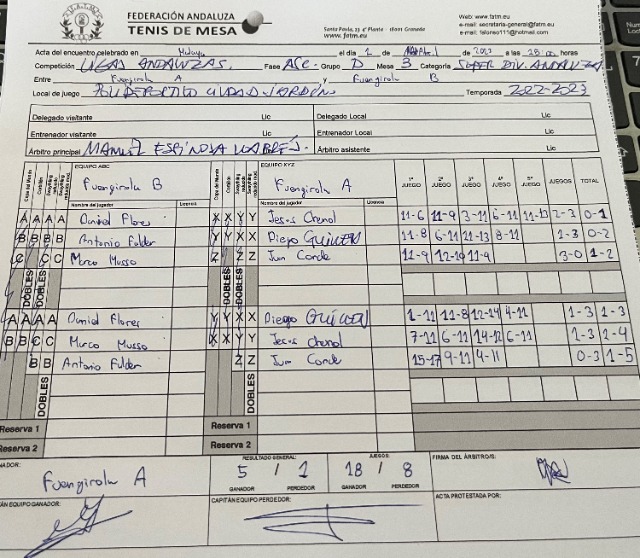 FEDERACIÓN ANDALUZA
TENIS DE MESA
Santa Paula, 23 4ª Planta · 18001 Granada
www.fatm.eu
Web: www.fatm.eu
e-mail: secretaria-general@fatm.eu
Acta del encuentro celebrado en Malaga el día 2 2023 a las 18:00 horas
Competición LIGAS ANDALUZAS Fase ASC. Grupo D Mesa 3 Categoría SUPER DIV. ANDALUZA
Entre Fuengirola A y Fuengirola B
Local de juego POLIDEPORTIVO CIUDAD JARDÍN Temporada 2022-2023
Delegado visitante Lic Delegado Local Lic
Entrenador visitante Lic Entrenador Local Lic
Árbitro principal MANUEL ESPINOSA Lic Árbitro asistente Lic
EQUIPO ABC EQUIPO XYZ 1º JUEGO 2º JUEGO 3º JUEGO 4º JUEGO 5º JUEGO JUEGOS TOTAL
Fuengirola B Fuengirola A
Nombre del jugador Licencia Nombre del jugador Licencia
A A A A Daniel Flores X X Y Y Jesus Chenol 11-6 11-9 3-11 6-11 11-13 2-3 0-1
B B B B Antonio Fulder Y Y X X Diego GUILLEN 11-8 6-11 11-13 8-11 1-3 0-2
C C C Marco Musso Z Z Juan Conde 11-9 12-10 11-4 3-0 1-2
DOBLES DOBLES DOBLES DOBLES
A A A A Daniel Flores Y Y X X Diego GUILLEN 1-11 11-8 12-14 4-11 1-3 1-3
B B C C Marco Musso X X Y Y Jesus Chenol 7-11 6-11 14-12 6-11 1-3 1-4
B B Antonio Fulder Z Z Juan Conde 15-17 9-11 4-11 0-3 1-5
DOBLES DOBLES
Reserva 1 Reserva 1
Reserva 2 Reserva 2
Fuengirola A
RESULTADO GENERAL: 5 / 1
GANADOR PERDEDOR
JUEGOS: 18 / 8
GANADOR PERDEDOR
FIRMA DEL ÁRBITRO/S:
CAPITÁN EQUIPO PERDEDOR:
ACTA PROTESTADA POR: